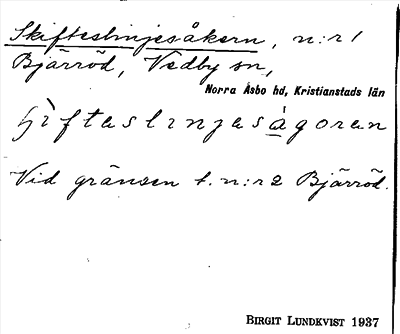 Skifteslinjesåkern, n:r 1
Bjärröd, Vedby sn,
Norra Åsbo hd, Kristianstads län
ʃìftaslinjasågoran
Vid gränsen t. n:r 2 Bjärröd.
BIRGIT LUNDKVIST 1937